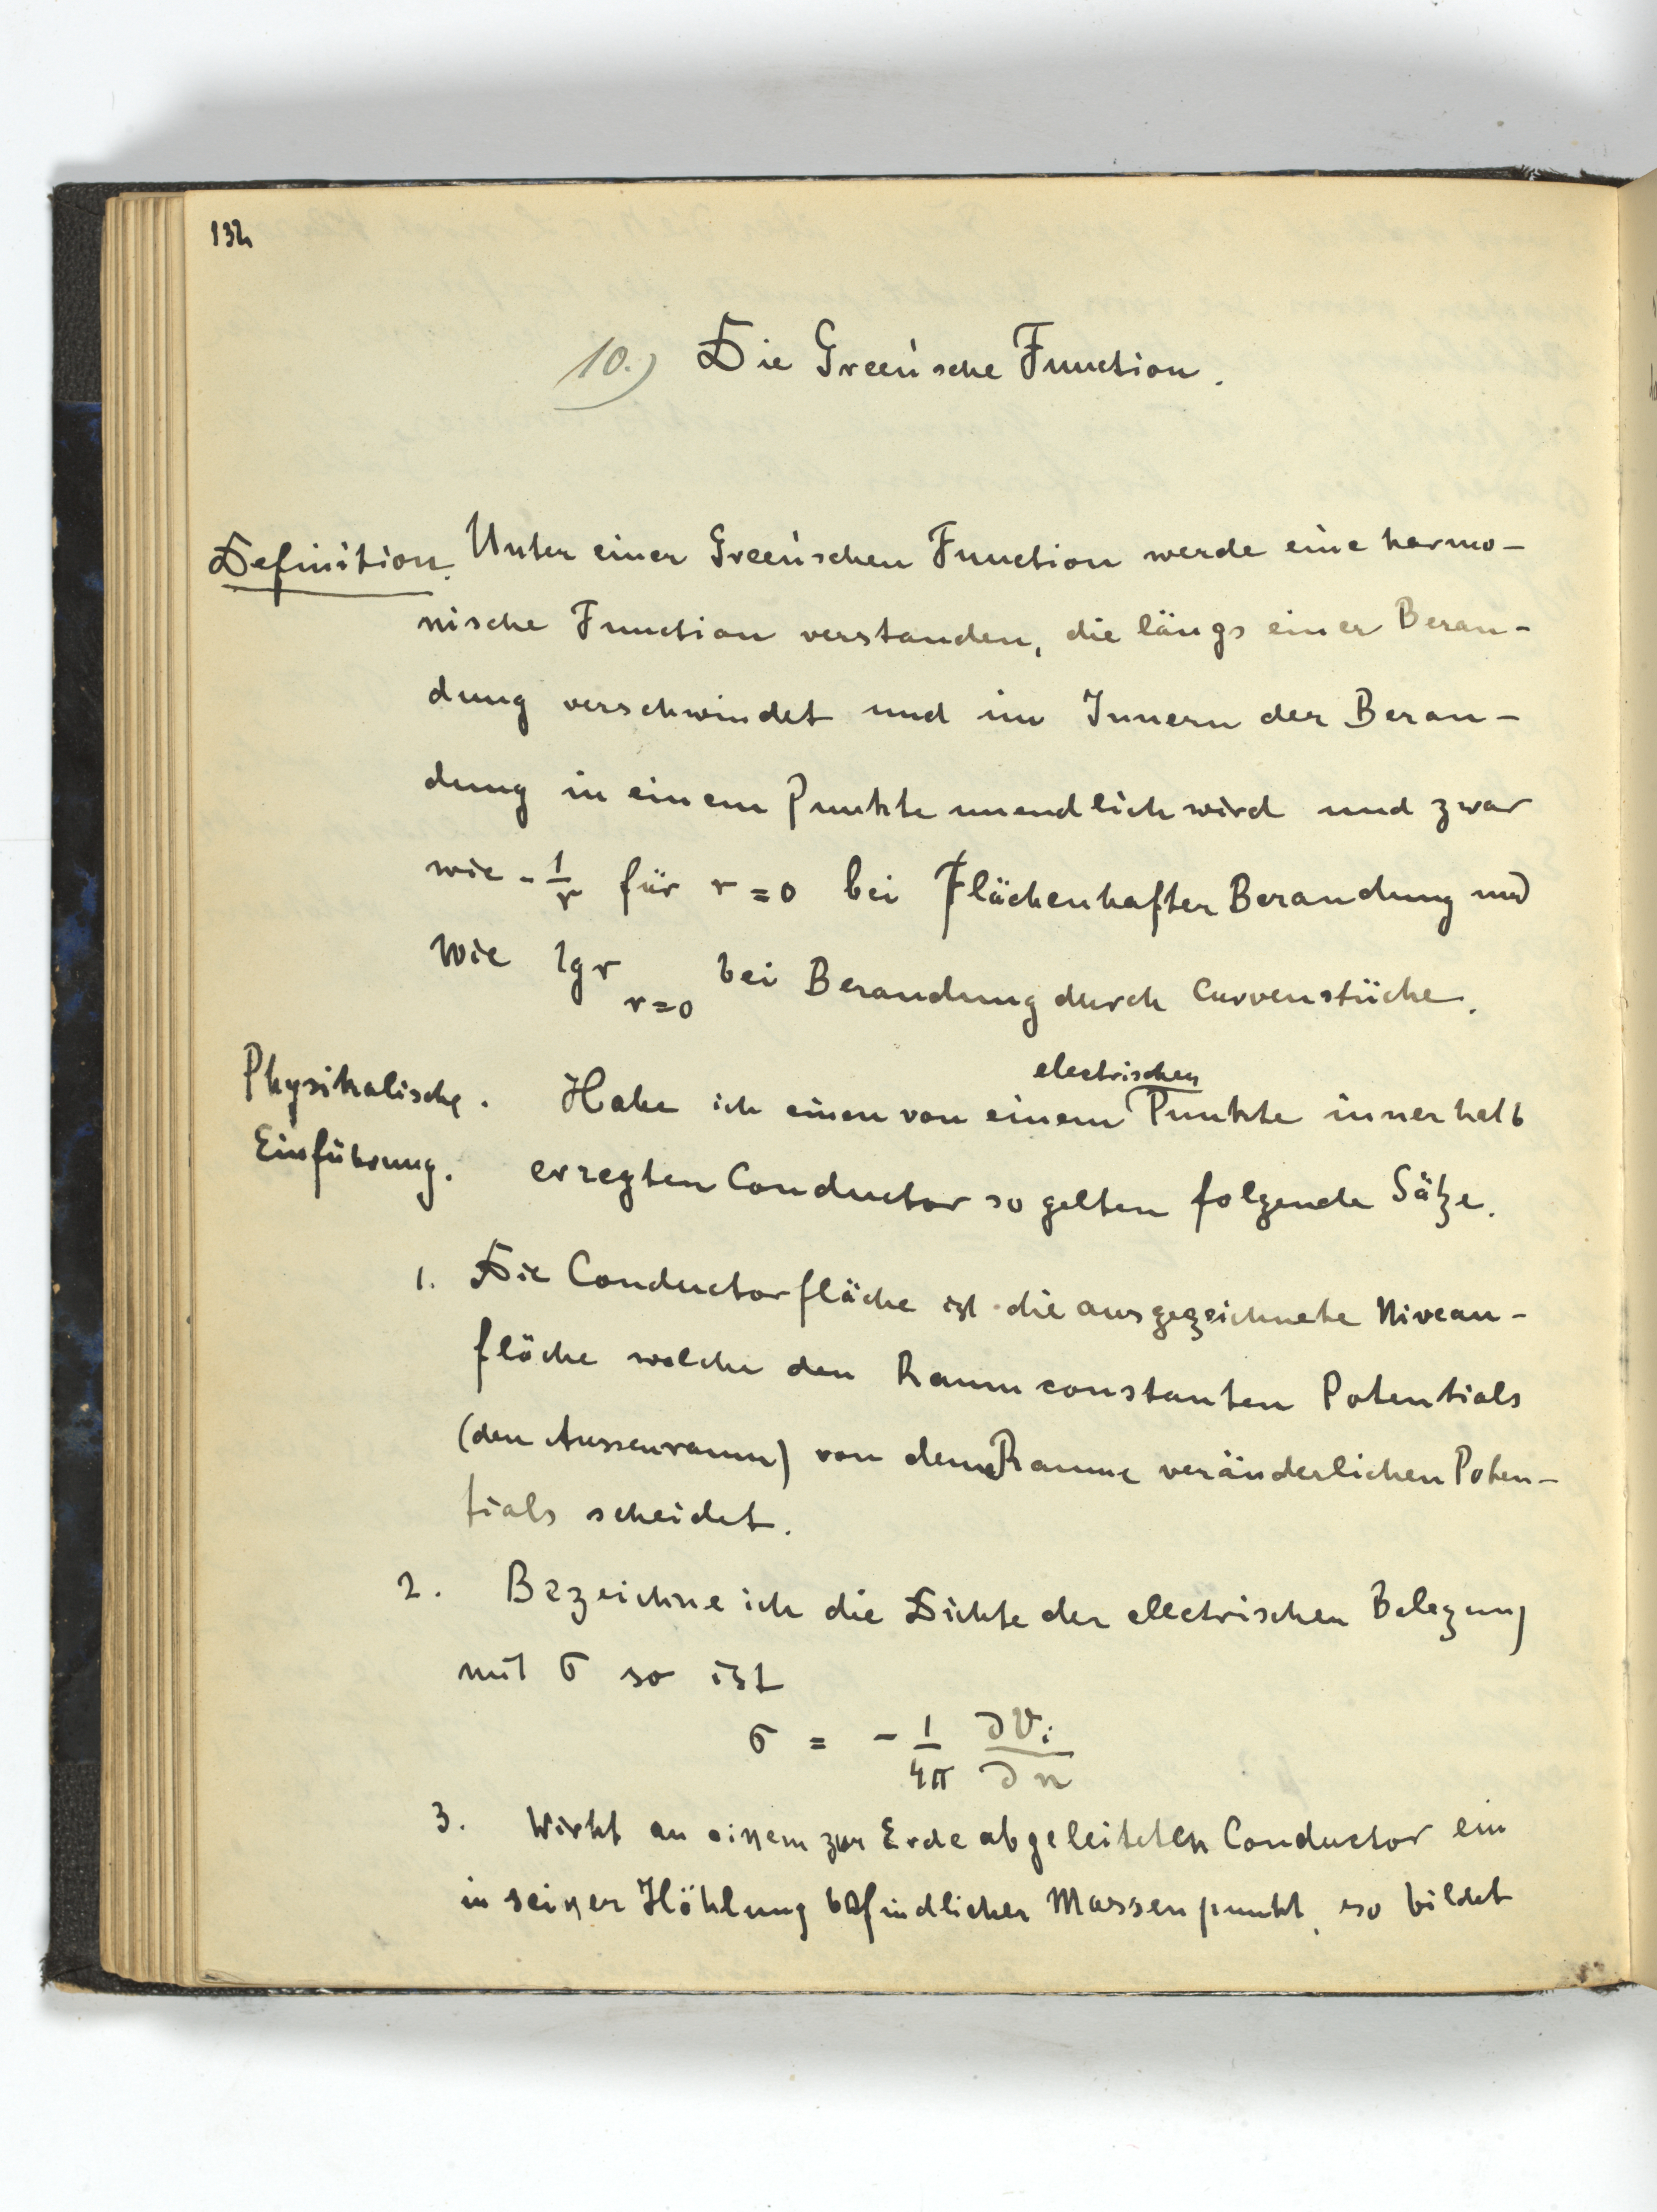 132
10.) Die Green'sche Function.
Definition. Unter einer Green'schen Function werde eine harmo-
nische Function verstanden, die längs einer Beran-
dung verschwindet und im Innern der Beran-
dung in einem Punkte unendlich wird und zwar
wie - 1/r für r = 0 bei Flächenhafter Berandung und
wie lg r r=0 bei Berandung durch Curvenstücke.
Physikalische. Habe ich einen von einem electrischen Punkte innerhalb
Einführung. erregten Conductor so gelten folgende Sätze.
1. Die Conductorfläche ist die ausgezeichnete Niveau-
fläche welche den Raum constanten Potentials
(den Aussenraum) von dem Raume veränderlichen Poten-
tials scheidet.
2. Bezeichne ich die Dichte der electrischen Belegung
mit σ so ist
σ = - 1/4π ∂Vi/∂n
3. Wirkt an einem zur Erde abgeleiteten Conductor ein
in seiner Höhlung befindlicher Massenpunkt, so bildet